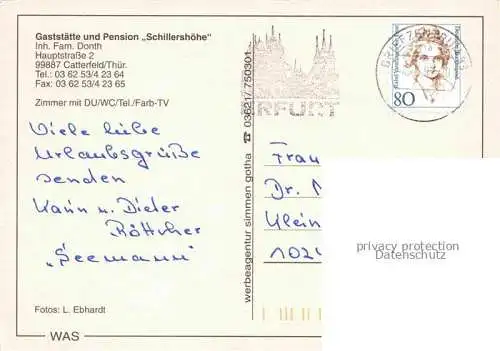 Gaststätte und Pension „Schillershöhe"
Inh. Fam. Donth
Hauptstraße 2
99887 Catterfeld/Thür.
Tel.: 03 62 53/4 23 64
Fax: 03 62 53/4 23 65
Zimmer mit DU/WC/Tel./Farb-TV
Viele liebe
Urlaubsgrüße
senden
Karin u. Dieter
Röttcher
„Seemann"
Fotos: L. Ebhardt
WAS
werbeagentur simmen gotha ☎ 03621/750301
ERFURT
BRIEFZENTRUM
80
Frau
Dr.
Klein
1024
privacy protection
Datenschutz